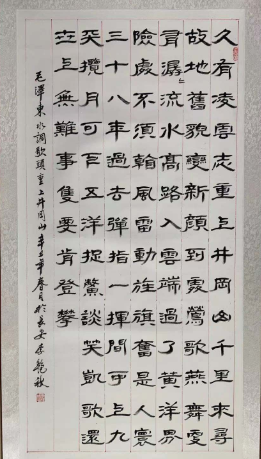 久有凌雲志重上井岡山千里來尋
故地舊貌變新顔到處鶯歌燕舞更
有潺〻流水高路入雲端過了黄洋界
險處不須看風雷動旌旗奮是人寰
三十八年過去彈指一揮間可上九
天攬月可下五洋捉鱉談笑凱歌還
世上無難事隻要肯登攀
毛澤東水調歌頭重上井岡山辛丑年春月於長安